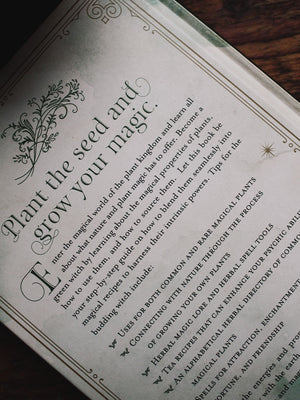 Plant the seed and
grow your magic.
Enter the magical world of the plant kingdom and learn all
about what nature and plant magic has to offer. Become a
green witch by learning about the magical properties of plants,
how to use them, and how to source them. Let this book be
your step-by-step guide on how to blend them seamlessly into
magical recipes to harness their intrinsic powers. Tips for the
budding witch include:
Uses for both common and rare magical plants
Connecting with nature through the process
of growing your plants
Herbal magic lore and herbal spell tools
Tea recipes that can enhance your psychic and
An alphabetical herbal directory of common
plants
Spells for attraction, enchantment
fortune, and friendship
the energies and pro
with the ease
and me